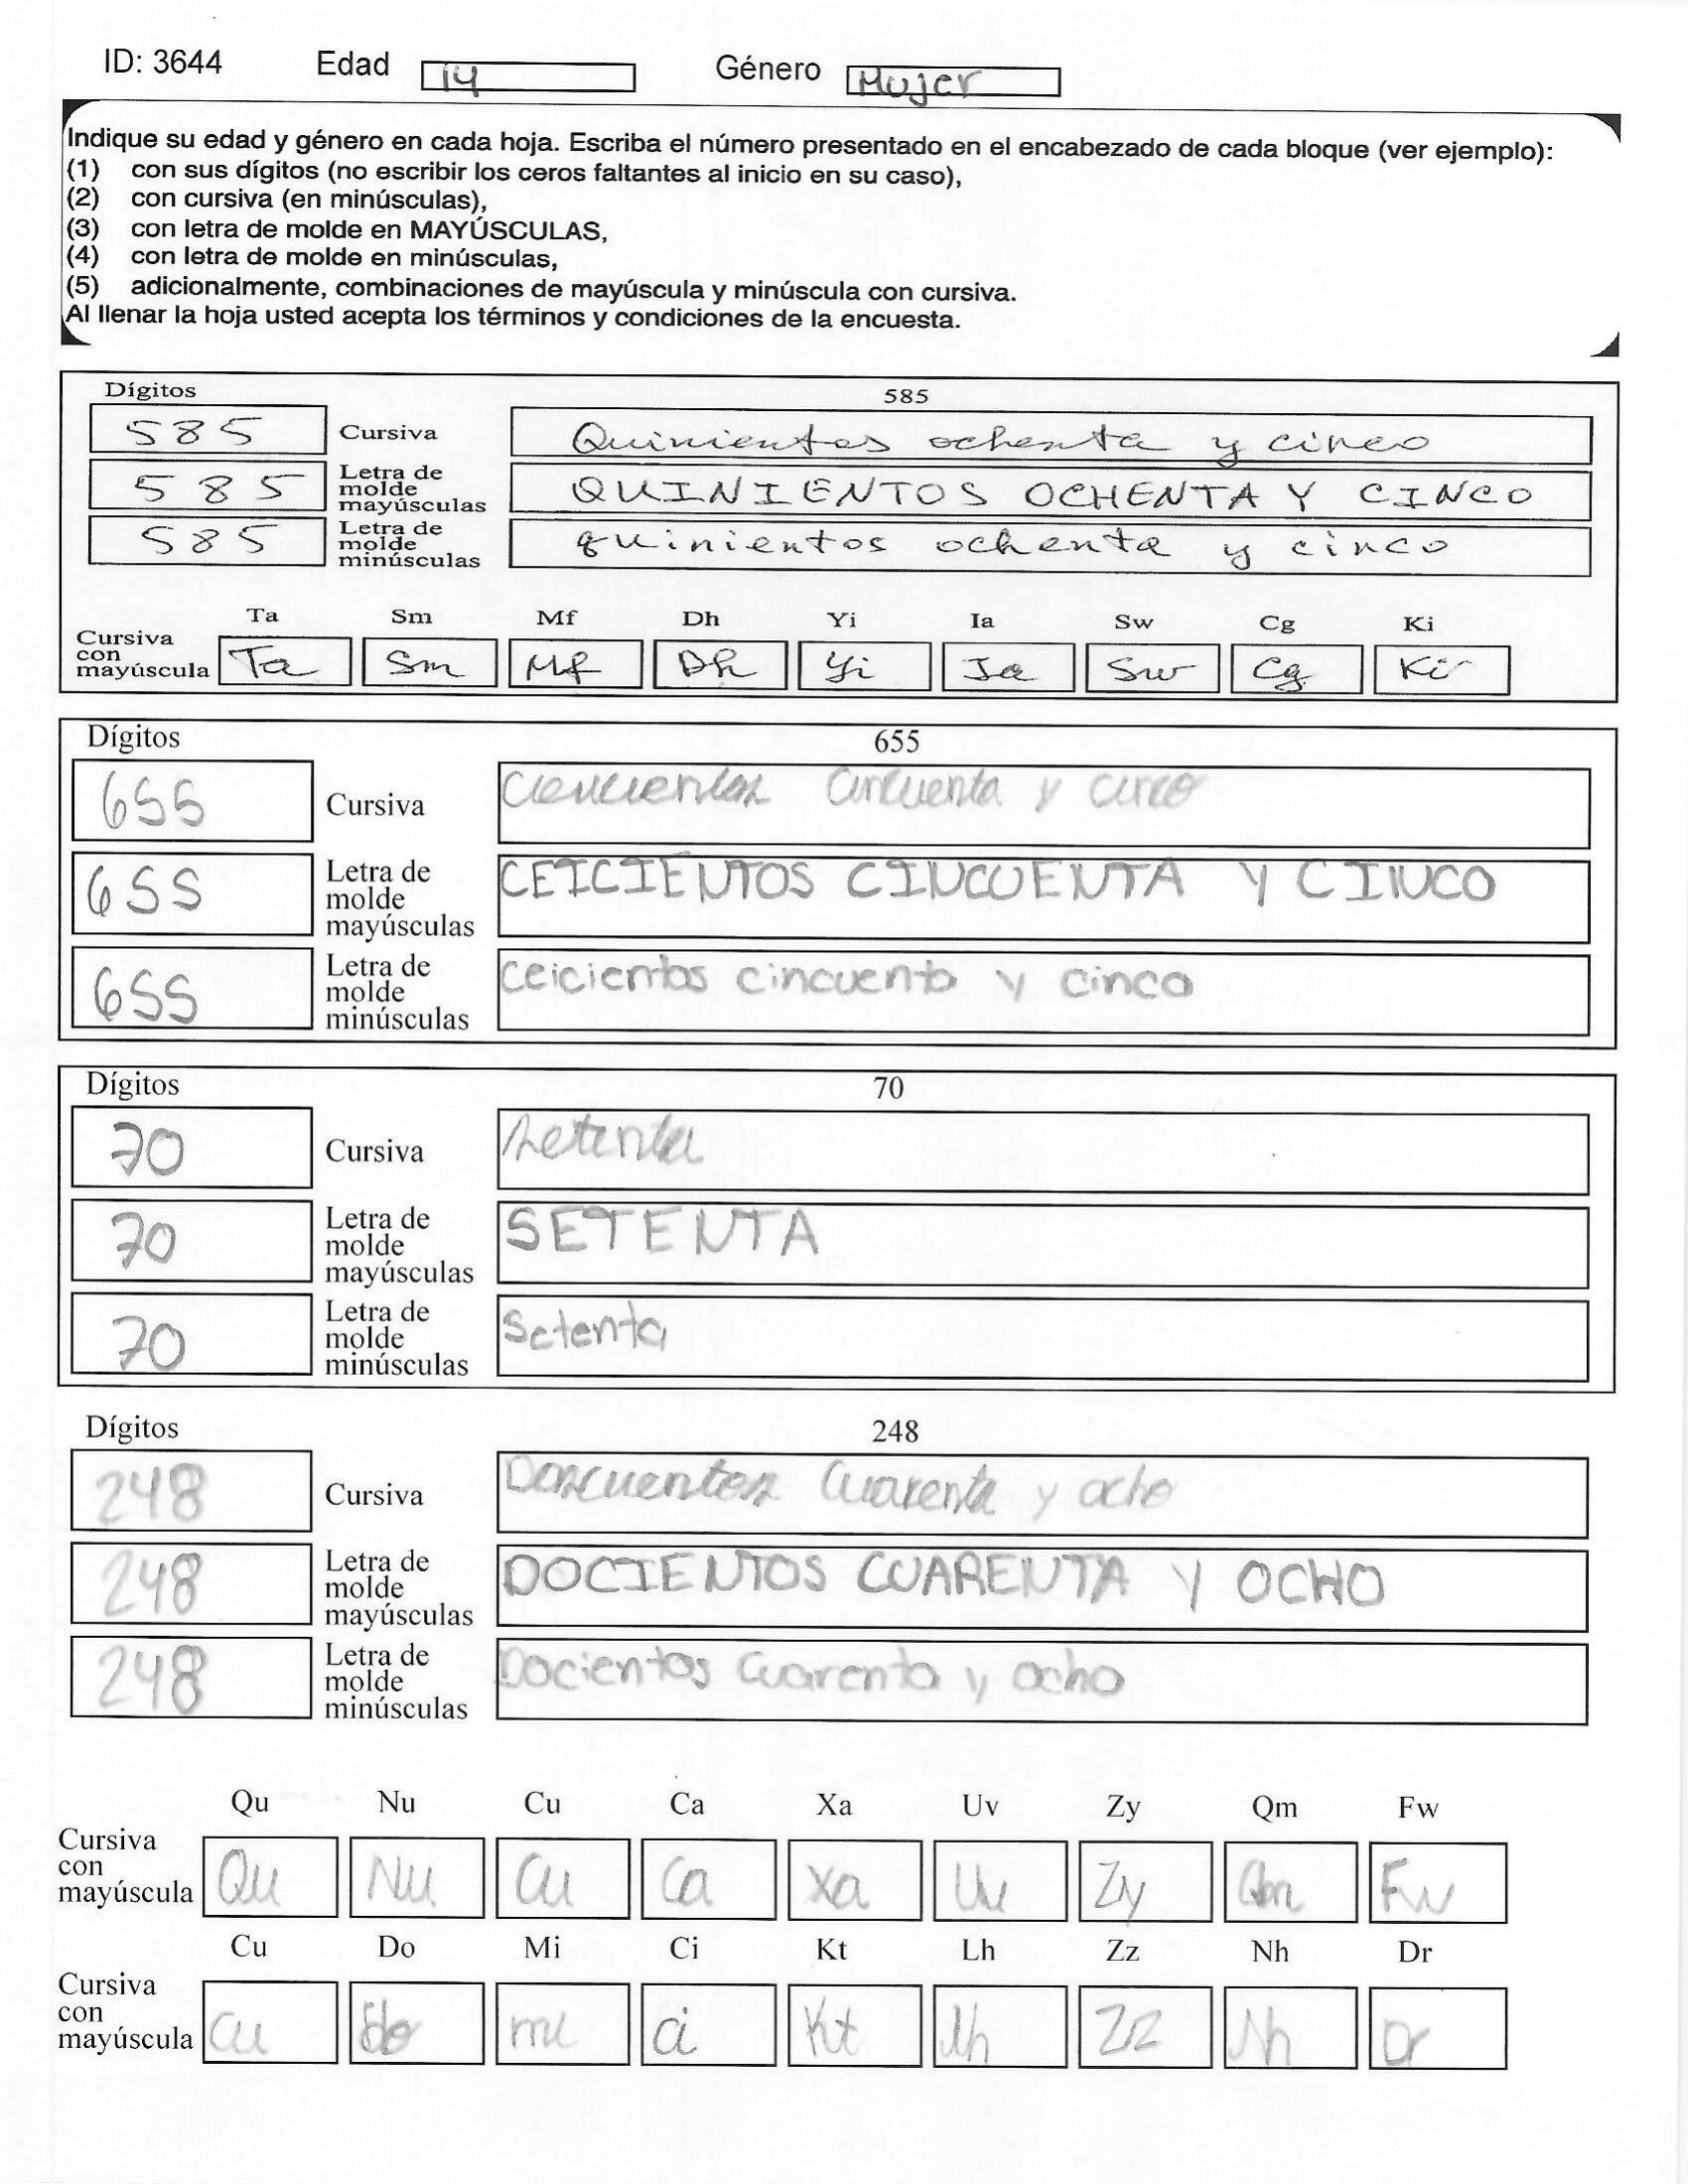 ID: 3644 Edad 14 Género Mujer
Indique su edad y género en cada hoja. Escriba el número presentado en el encabezado de cada bloque (ver ejemplo):
(1) con sus dígitos (no escribir los ceros faltantes al inicio en su caso),
(2) con cursiva (en minúsculas),
(3) con letra de molde en MAYÚSCULAS,
(4) con letra de molde en minúsculas,
(5) adicionalmente, combinaciones de mayúscula y minúscula con cursiva.
Al llenar la hoja usted acepta los términos y condiciones de la encuesta.
Dígitos 585
585 Cursiva Quinientos ochenta y cinco
585 Letra de molde mayúsculas QUINIENTOS OCHENTA Y CINCO
585 Letra de molde minúsculas quinientos ochenta y cinco
Ta Sm Mf Dh Yi Ia Sw Cg Ki
Cursiva con mayúscula Ta Sm Mf Dh Yi Ia Sw Cg Ki
Dígitos 655
655 Cursiva cincuenta y cinco
655 Letra de molde mayúsculas CEICIENTOS CINCUENTA Y CINCO
655 Letra de molde minúsculas ceicientos cincuenta y cinco
Dígitos 70
70 Cursiva setenta
70 Letra de molde mayúsculas SETENTA
70 Letra de molde minúsculas Setenta
Dígitos 248
248 Cursiva cuarenta y ocho
248 Letra de molde mayúsculas DOCIENTOS CUARENTA Y OCHO
248 Letra de molde minúsculas Docientos cuarenta y ocho
Qu Nu Cu Ca Xa Uv Zy Qm Fw
Cursiva con mayúscula Qu Nu Cu Ca Xa Uv Zy Qm Fw
Cu Do Mi Ci Kt Lh Zz Nh Dr
Cursiva con mayúscula Cu do mi ci Kt Lh Zz Nh Dr